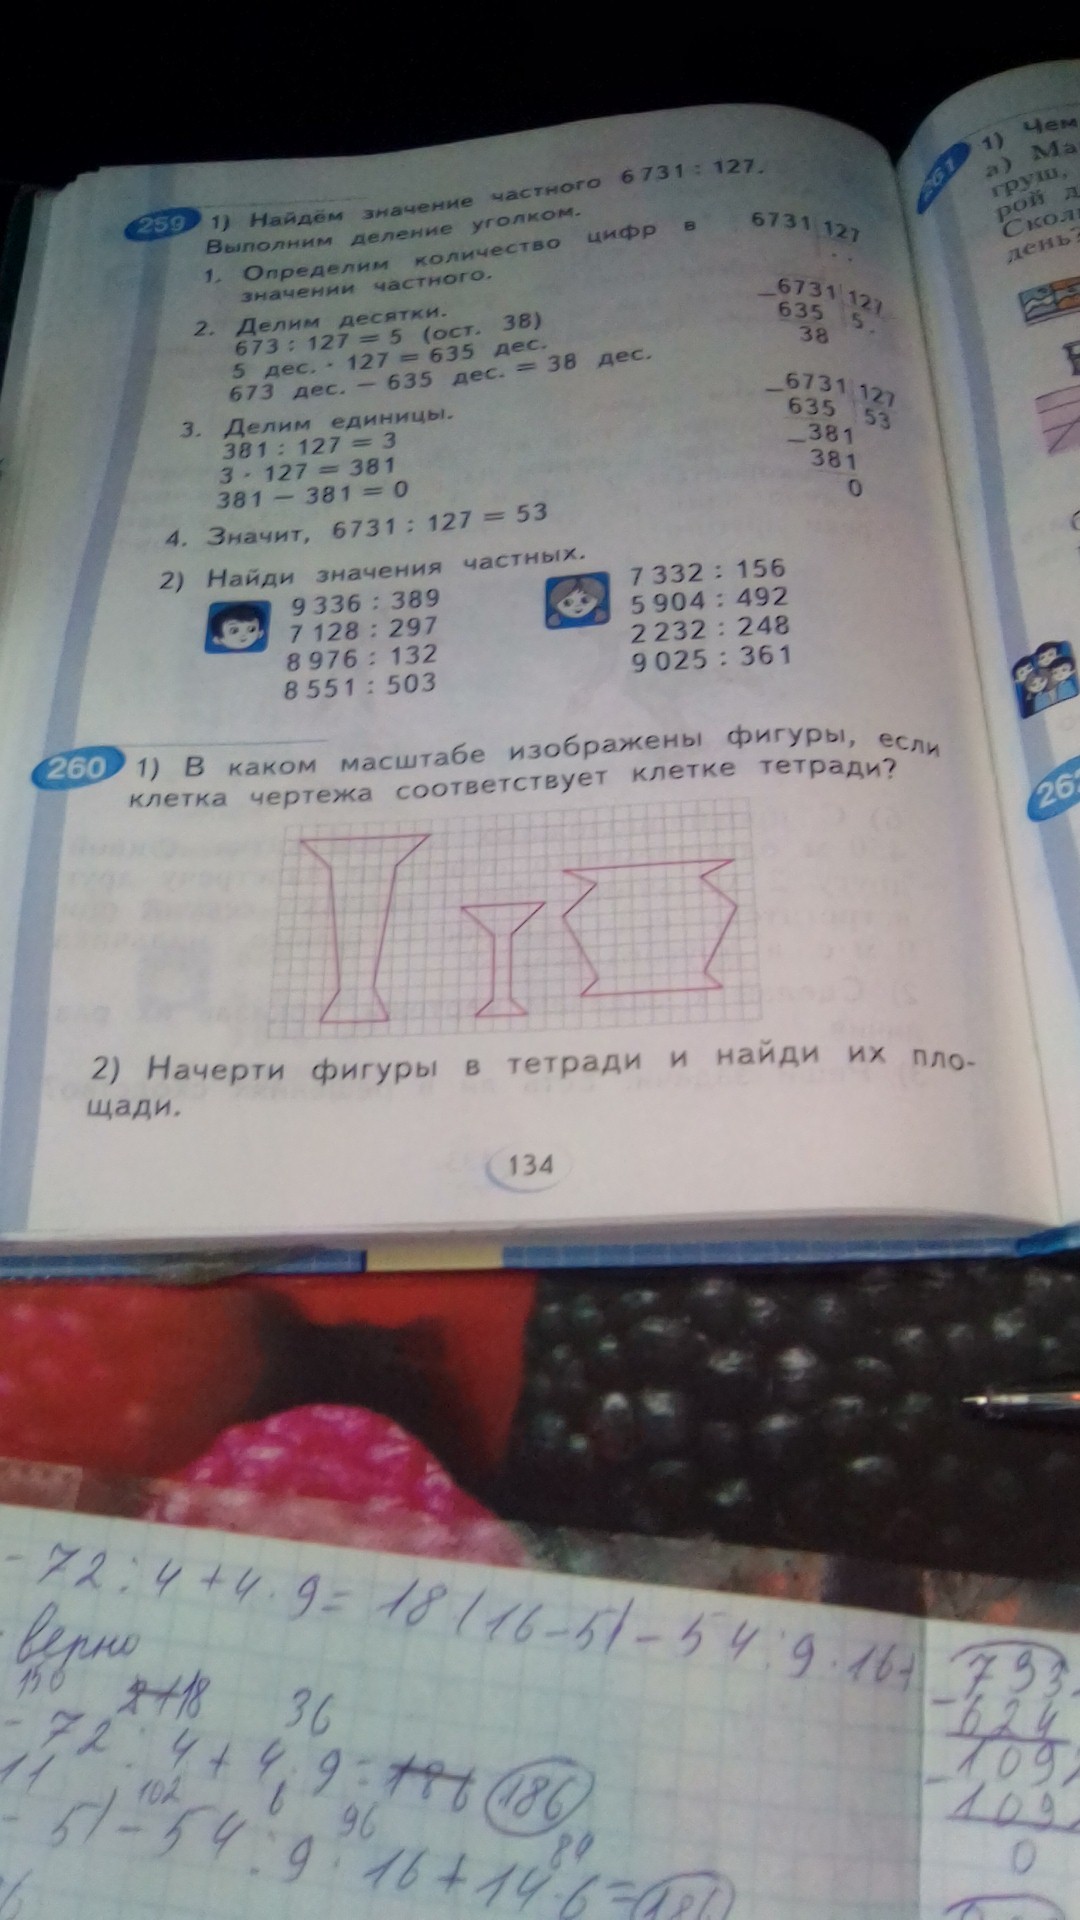 259 1) Найдём значение частного 6 731 : 127.
Выполним деление уголком.
1. Определим количество цифр в
значении частного.
6731 127
. .
2. Делим десятки.
673 : 127 = 5 (ост. 38)
5 дес. · 127 = 635 дес.
673 дес. — 635 дес. = 38 дес.
—6731 127
635 5.
38
3. Делим единицы.
381 : 127 = 3
3 · 127 = 381
381 — 381 = 0
—6731 127
635 53
—381
381
0
4. Значит, 6731 : 127 = 53
2) Найди значения частных.
9 336 : 389
7 128 : 297
8 976 : 132
8 551 : 503
7 332 : 156
5 904 : 492
2 232 : 248
9 025 : 361
260 1) В каком масштабе изображены фигуры, если
клетка чертежа соответствует клетке тетради?
2) Начерти фигуры в тетради и найди их пло-
щади.
134
261 1) Чем
а) Ма
груш,
рой д
Скол
день?
262
- 72 : 4 + 4 · 9 = 18 (16 - 5) - 54 : 9 · 16 +
верно
150 18 36
- 72 : 4 + 4 · 9 = 186 186
11 102 6 96 84
- 5) - 54 : 9 · 16 + 14 · 6 = 186
793
- 624
109
- 109
0